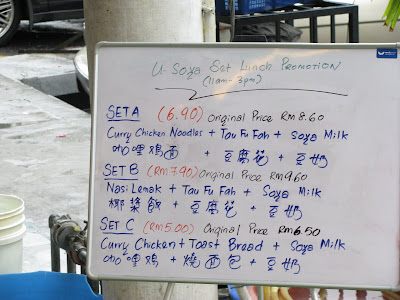 U-Soya Set Lunch PROMOTION
(11am - 3pm)
SET A (6.90) Original Price RM 8.60
Curry Chicken Noodles + Tau Fu Fah + Soya Milk
咖喱鸡面 + 豆腐花 + 豆奶
SET B (RM7.90) Original Price RM9.60
Nasi Lemak + Tau Fu Fah + Soya Milk
椰漿飯 + 豆腐花 + 豆奶
SET C (RM5.00) Original Price RM6.50
Curry Chicken + Toast Bread + Soya Milk
咖喱鸡 + 燒面包 + 豆奶